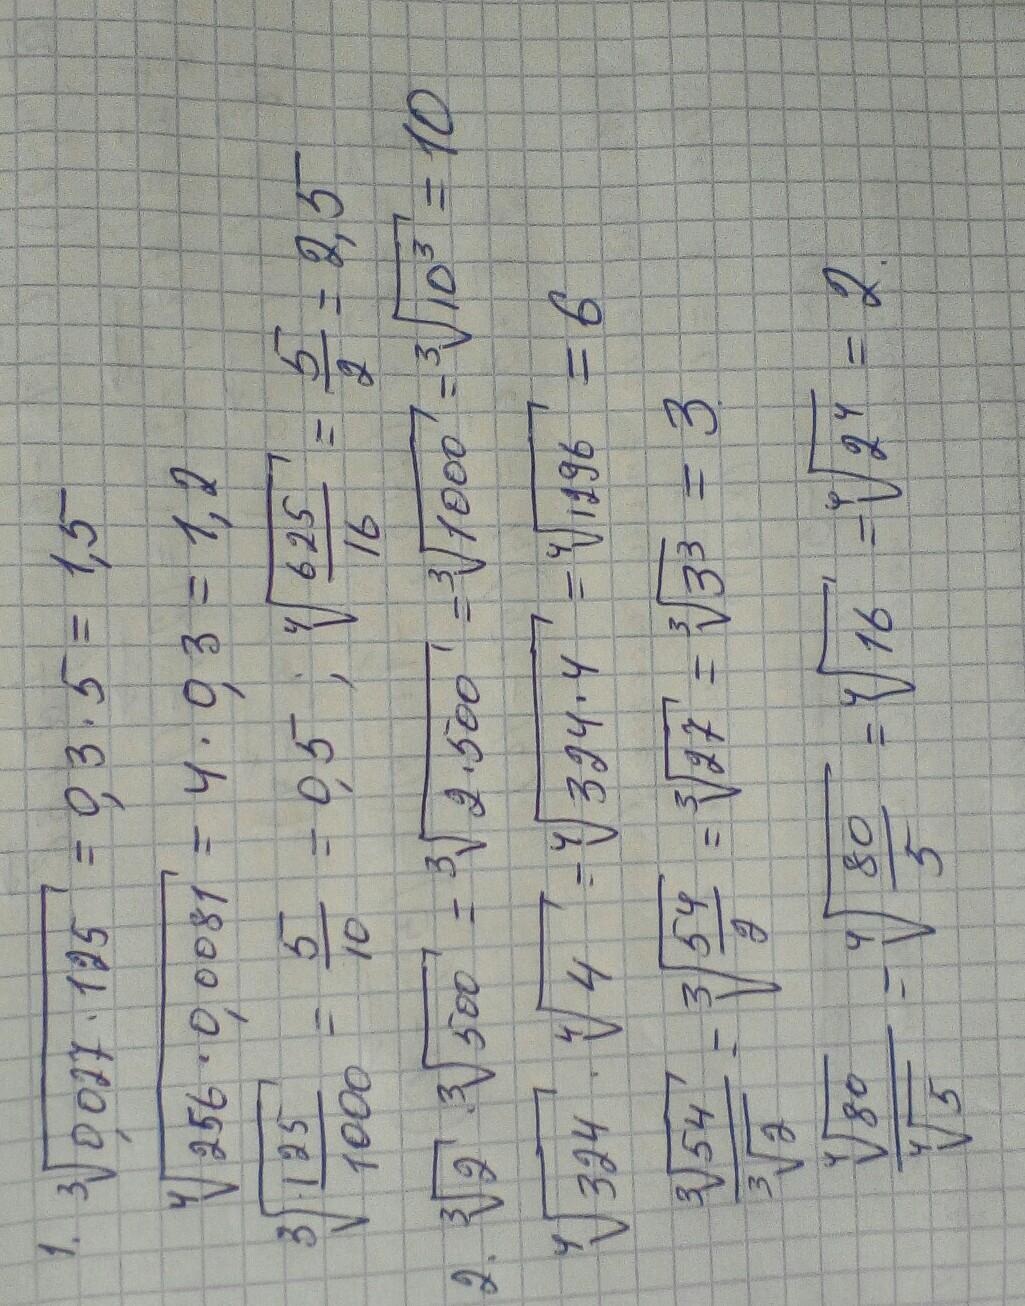 1. ∛(0,027·125) = 0,3·5 = 1,5
∜(256·0,0081) = 4·0,3 = 1,2
∛(125/1000) = 5/10 = 0,5 ; ∜(625/16) = 5/2 = 2,5
2. ∛2·∛500 = ∛(2·500) = ∛1000 = ∛10³ = 10
∜324·∜4 = ∜(324·4) = ∜1296 = 6
∛54/∛2 = ∛(54/2) = ∛27 = ∛3³ = 3
∜80/∜5 = ∜(80/5) = ∜16 = ∜2⁴ = 2.